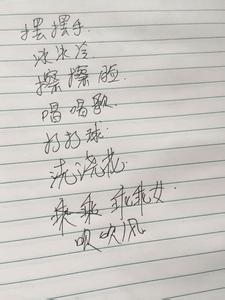 摆摆手
冰冰冷
擦擦脸
唱唱歌
打打球
浇浇花
乖乖 乖乖女
吹吹风